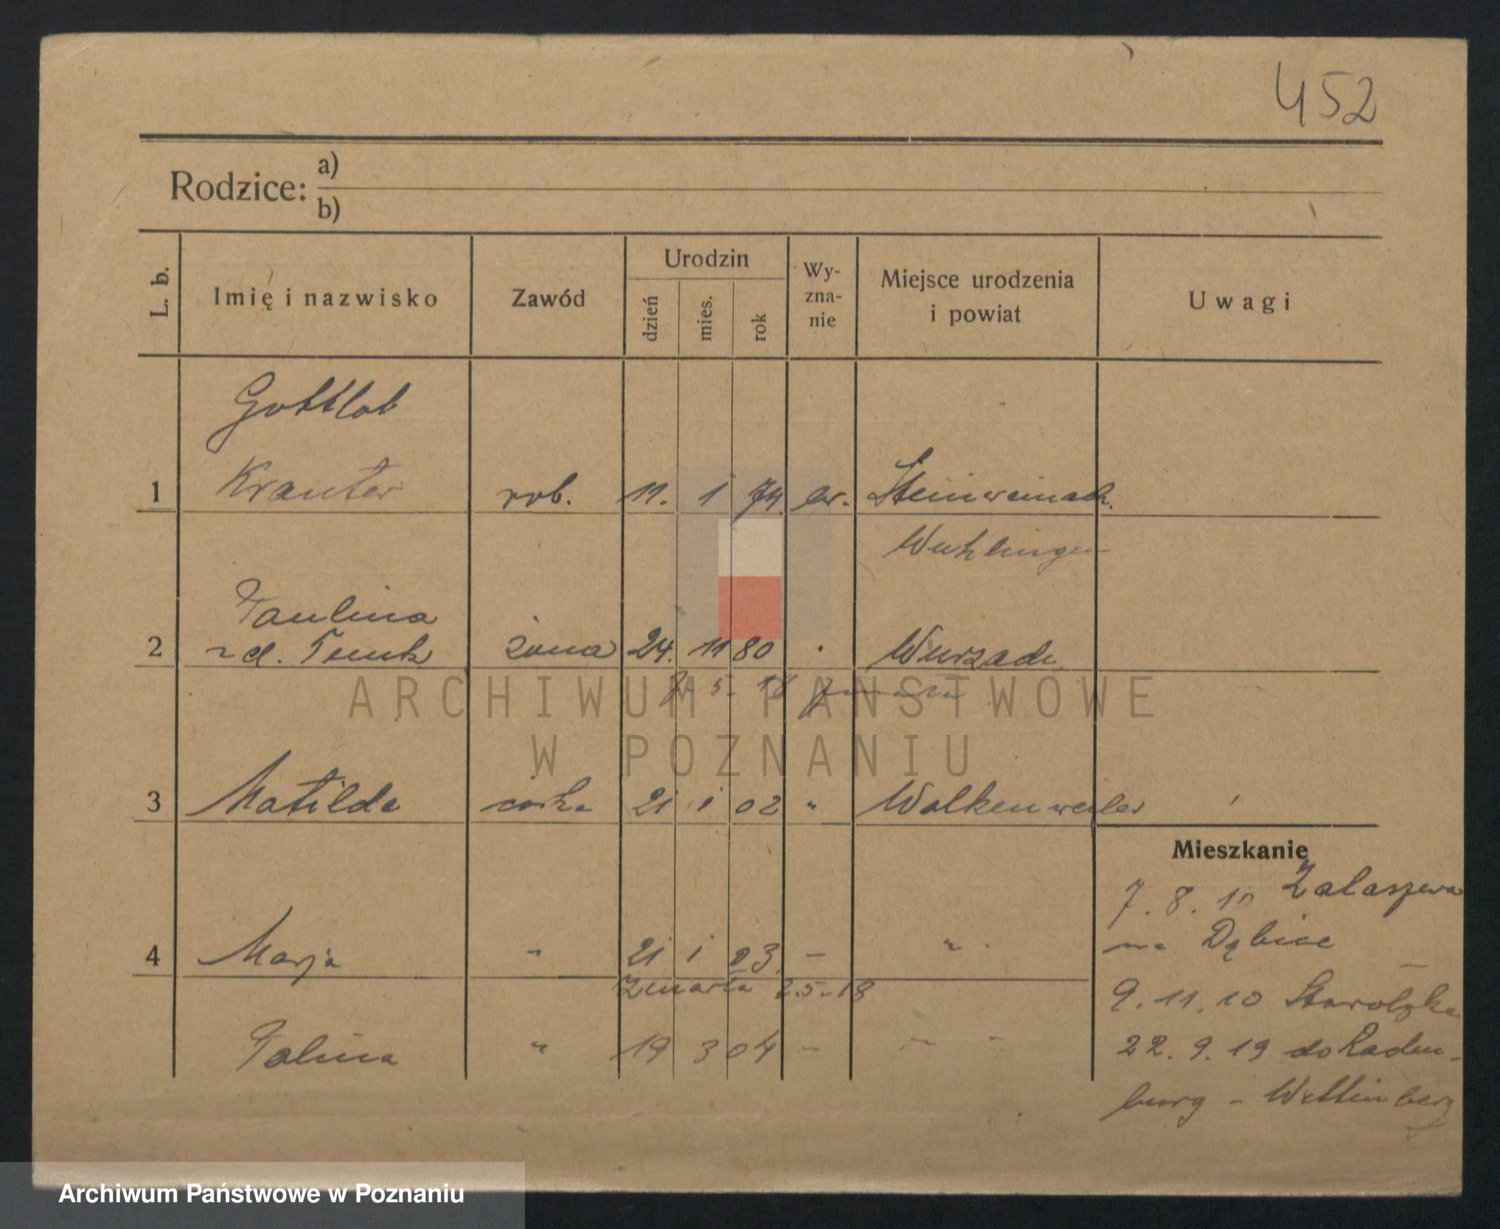 452
Rodzice: a)
b)
L. b. Imię i nazwisko Zawód Urodzin dzień mies. rok Wy-zna-nie Miejsce urodzenia i powiat Uwagi
Gottlob
1 Krauter rob. 11. 1 74. ew. Steinweinach.
Paulina
2 zd. żona 24. 11 80
7 5. 18 zmarła
ARCHIWUM PAŃSTWOWE
W POZNANIU
3 Matilda córka 21 1 02 " Walkenweiler
Mieszkanie
7. 8. 10
na Dębice
4 Marja " 21 1 03. –
zmarła 2.5.18
9. 11. 10 Starołęka
Palina " 19 3 04 –
22. 9. 19 do
burg –
Archiwum Państwowe w Poznaniu